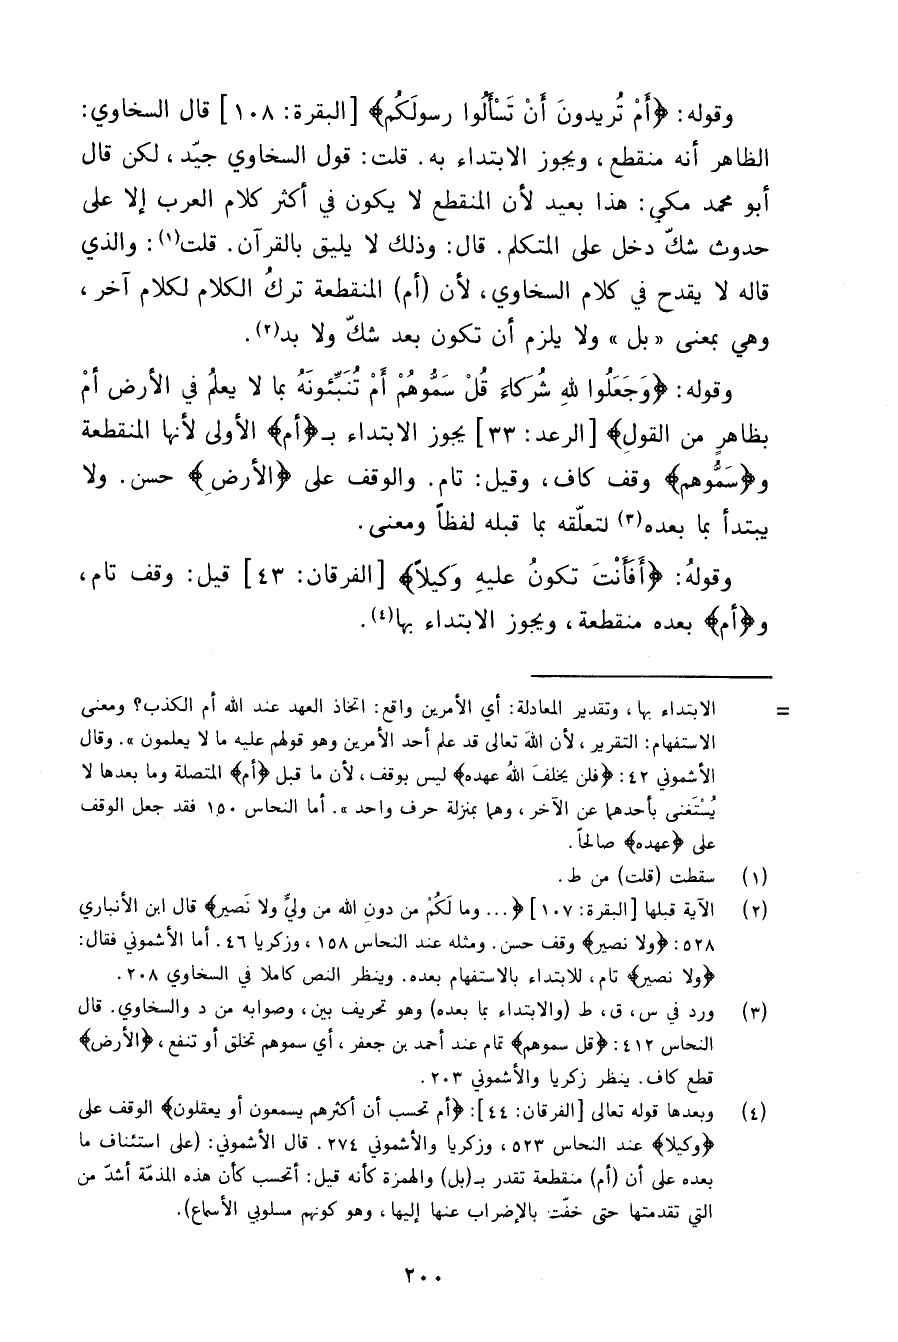 وقوله: ﴿أَمْ تُريدونَ أَنْ تَسْأَلُوا رسولَكُم﴾ [البقرة: ١٠٨] قال السخاوي:
الظاهر أنه منقطع، ويجوز الابتداء به. قلت: قول السخاوي جيّد، لكن قال
أبو محمد مكي: هذا بعيد لأن المنقطع لا يكون في أكثر كلام العرب إلا على
حدوث شكّ دخل على المتكلم. قال: وذلك لا يليق بالقرآن. قلت(١): والذي
قاله لا يقدح في كلام السخاوي، لأن (أم) المنقطعة تركُ الكلام لكلام آخر،
وهي بمعنى «بل» ولا يلزم أن تكون بعد شكّ ولا بد(٢).
وقوله: ﴿وَجَعَلُوا للهِ شُرَكاءَ قُلْ سَمُّوهُمْ أَمْ تُنَبِّئونَهُ بما لا يعلمُ في الأرض أمْ
بظاهرٍ من القولِ﴾ [الرعد: ٣٣] يجوز الابتداء بـ﴿أم﴾ الأولى لأنها المنقطعة
و﴿سَمُّوهم﴾ وقف كاف، وقيل: تام. والوقف على ﴿الأرضِ﴾ حسن. ولا
يبتدأ بما بعده(٣) لتعلّقه بما قبله لفظاً ومعنى.
وقولهُ: ﴿أَفَأَنْتَ تكونُ عليهِ وَكيلاً﴾ [الفرقان: ٤٣] قيل: وقف تام،
و﴿أم﴾ بعده منقطعة، ويجوز الابتداء بها(٤).
= الابتداء بها، وتقدير المعادلة: أي الأمرين واقع: اتخاذ العهد عند الله أم الكذب؟ ومعنى
الاستفهام: التقرير، لأن اللهَ تعالى قد علم أحد الأمرين وهو قولهم عليه ما لا يعلمون». وقال
الأشموني ٤٢: ﴿فلن يخلفَ اللهُ عهده﴾ ليس بوقف، لأن ما قبل ﴿أم﴾ المتصلة وما بعدها لا
يُسْتَغنى بأحدهما عن الآخر، وهما بمنزلة حرف واحد». أما النحاس ١٥٠ فقد جعل الوقف
على ﴿عهده﴾ صالحاً.
(١) سقطت (قلت) من ط.
(٢) الآية قبلها [البقرة: ١٠٧] ﴿... وما لَكُمْ من دونِ الله من وليٍّ ولا نَصير﴾ قال ابن الأنباري
٥٢٨: ﴿ولا نصير﴾ وقف حسن. ومثله عند النحاس ١٥٨، وزكريا ٤٦. أما الأشموني فقال:
﴿ولا نصير﴾ تام، للابتداء بالاستفهام بعده. وينظر النص كاملا في السخاوي ٢٠٨.
(٣) ورد في س، ق، ط (والابتداء بما بعده) وهو تحريف بين، وصوابه من د والسخاوي. قال
النحاس ٤١٢: ﴿قل سموهم﴾ تمام عند أحمد بن جعفر، أي سموهم تخلق أو تنفع، ﴿الأرض﴾
قطع كاف. ينظر زكريا والأشموني ٢٠٣.
(٤) وبعدها قوله تعالى [الفرقان: ٤٤]: ﴿أم تحسب أن أكثرهم يسمعون أو يعقلون﴾ الوقف على
﴿وكيلا﴾ عند النحاس ٥٢٣، وزكريا والأشموني ٢٧٤. قال الأشموني: (على استئناف ما
بعده على أن (أم) منقطعة تقدر بـ(بل) والهمزة كأنه قيل: أتحسب كأن هذه المذمّة أشدّ من
التي تقدمتها حتى خفّت بالإضراب عنها إليها، وهو كونهم مسلوبي الأسماع).
٢٠٠